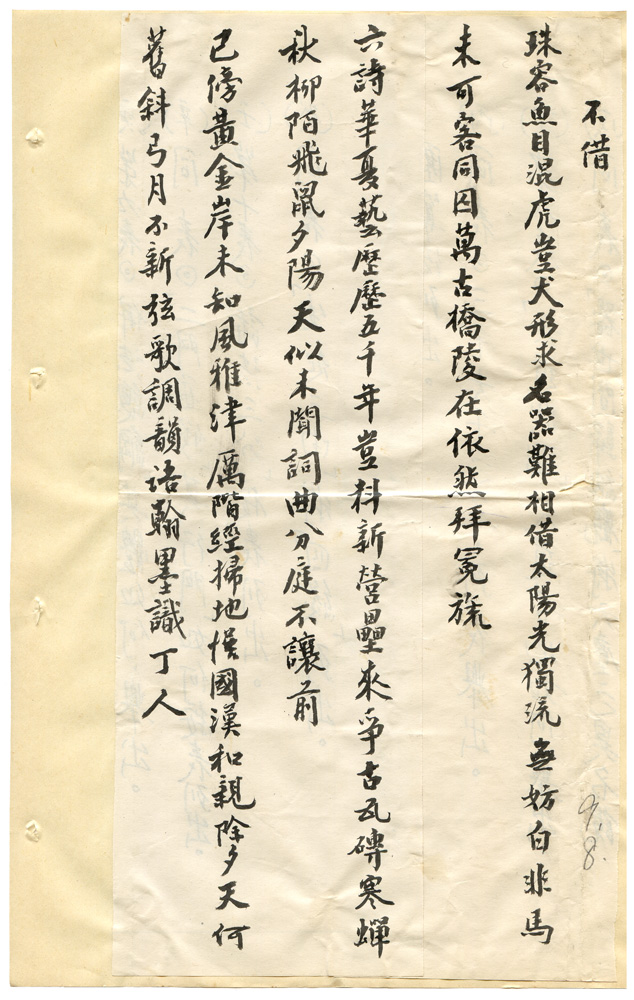 不借
珠容魚目混虎豈犬形求名器難相借太陽光獨流無妨白非馬
未可客同囚萬古橋陵在依然拜冕旒
六詩華夏藝歷歷五千年豈料新營壘來爭古瓦磚寒蟬
秋柳陌飛鼠夕陽天似未聞詞曲分庭不讓前
已傍黃金岸未知風雅津厲階經掃地國漢和親除夕天何
舊斜弓月不新弦歌調韻語翰墨識丁人
9.8.